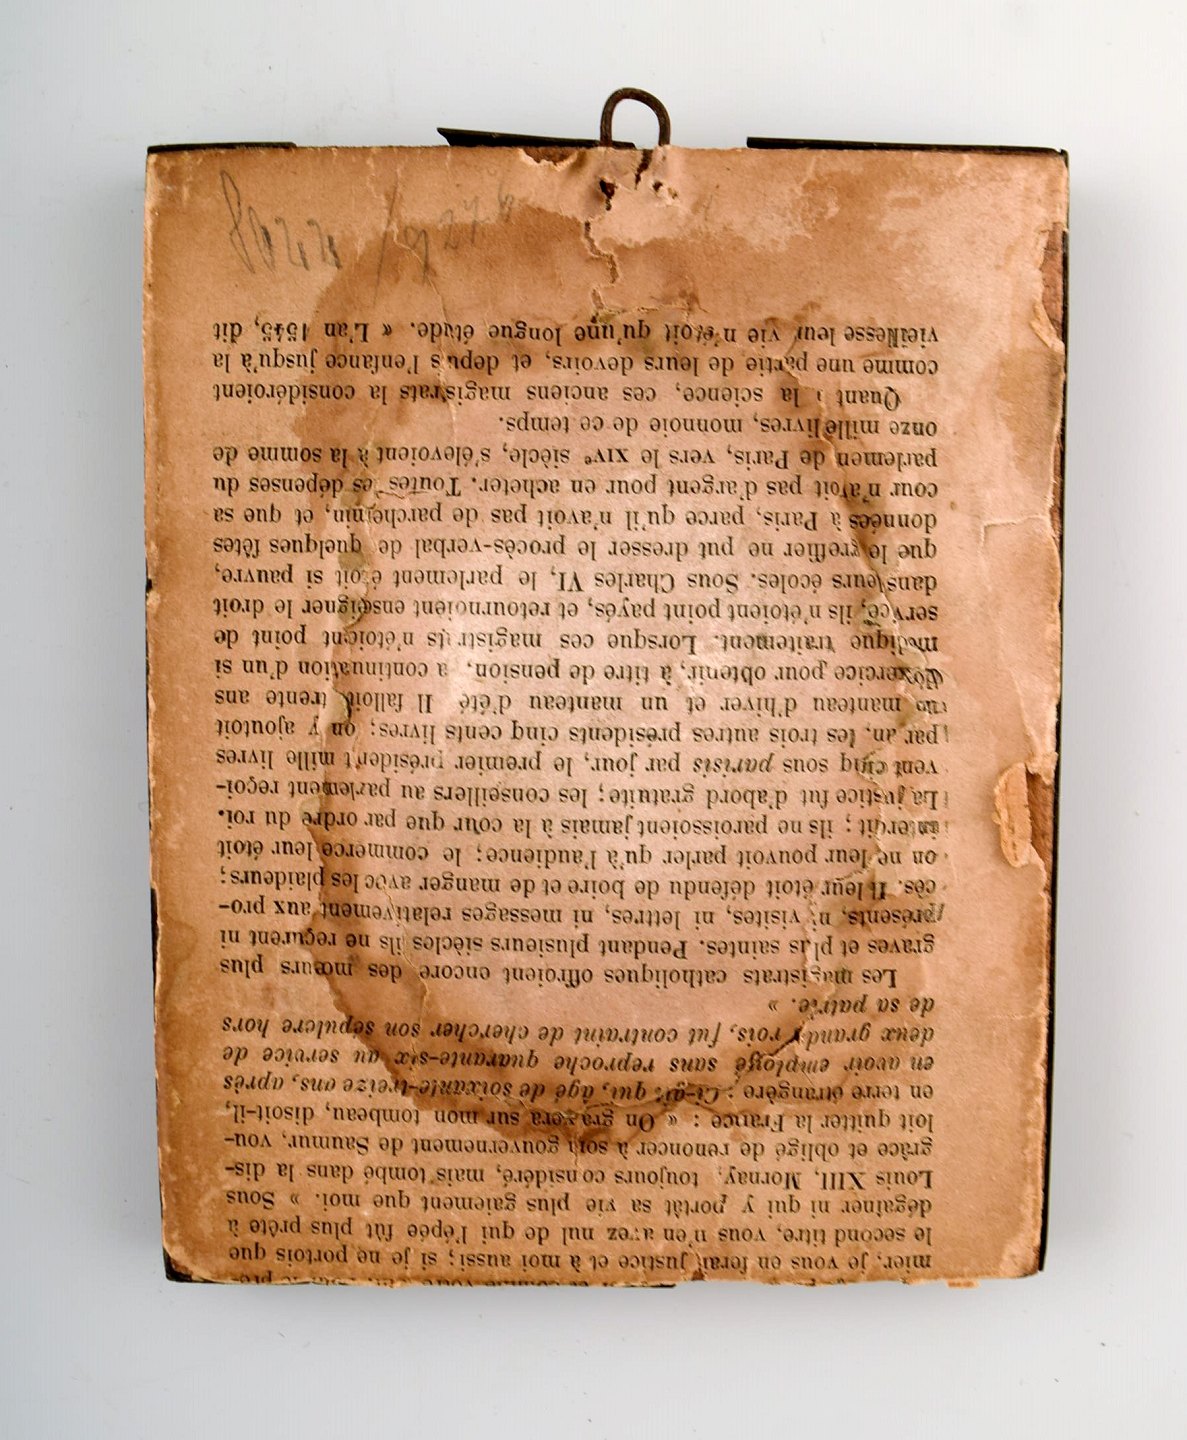 mier, je vous en ferai justice et à moi aussi; si je ne portois que
le second titre, vous n'en avez nul de qui l'épée fût plus prête à
dégainer ni qui y portât sa vie plus gaiement que moi. » Sous
Louis XIII, Mornay, toujours considéré, mais tombé dans la dis-
grâce et obligé de renoncer à son gouvernement de Saumur, vou-
loit quitter la France : « On gravera sur mon tombeau, disoit-il,
en terre étrangère : Ci-gît qui, âgé de soixante-treize ans, après
en avoir employé sans reproche quarante-six au service de
deux grands rois, fut contraint de chercher son sépulcre hors
de sa patrie. »
Les magistrats catholiques offroient encore des mœurs plus
graves et plus saintes. Pendant plusieurs siècles ils ne reçurent ni
présents, ni visites, ni lettres, ni messages relativement aux pro-
cès. Il leur étoit défendu de boire et de manger avec les plaideurs;
on ne leur pouvoit parler qu'à l'audience; le commerce leur étoit
interdit; ils ne paroissoient jamais à la cour que par ordre du roi.
La justice fut d'abord gratuite; les conseillers au parlement reçoi-
vent cinq sous parisis par jour, le premier président mille livres
par an, les trois autres présidents cinq cents livres; on y ajoutoit
un manteau d'hiver et un manteau d'été Il falloit trente ans
d'exercice pour obtenir, à titre de pension, a continuation d'un si
modique traitement. Lorsque ces magistrats n'étoient point de
service, ils n'étoient point payés, et retournoient enseigner le droit
dans leurs écoles. Sous Charles VI, le parlement étoit si pauvre,
que le greffier ne put dresser le procès-verbal de quelques fêtes
données à Paris, parce qu'il n'avoit pas de parchemin, et que sa
cour n'avoit pas d'argent pour en acheter. Toutes es dépenses du
parlemen de Paris, vers le XIVe siècle, s'élevoient à la somme de
onze mille livres, monnoie de ce temps.
Quant la science, ces anciens magistrats la considéroient
comme une partie de leurs devoirs, et depuis l'enfance jusqu'à la
vieillesse leur vie n'étoit qu'une longue étude. « L'an 1545, dit